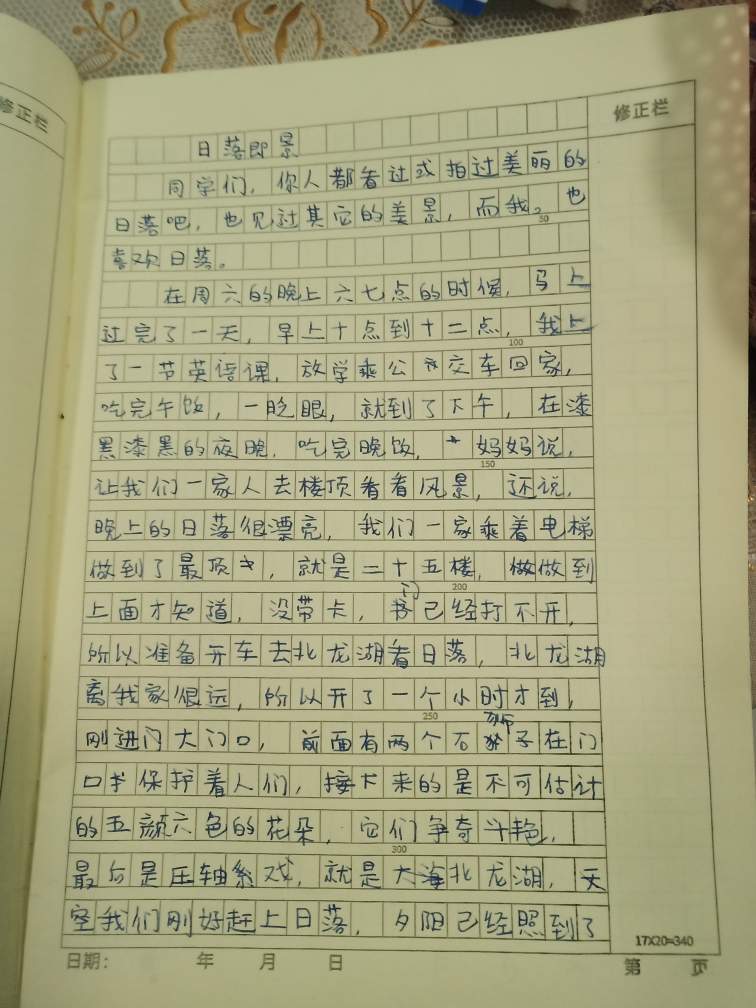 修正栏
修正栏
日落即景
同学们，你人都看过或拍过美丽的
日落吧，也见过其它的美景，而我。也
50
喜欢日落。
在周六的晚上六七点的时候，马上
过完了一天，早上十点到十二点，我上
100
了一节英语课，放学乘公交车回家，
吃完午饭，一眨眼，就到了下午，在漆
黑漆黑的夜晚，吃完晚饭，妈妈说，
150
让我们一家人去楼顶看看风景，还说，
晚上的日落很漂亮，我们一家乘着电梯
做到了最顶，就是二十五楼，做到
200
上面才知道，没带卡，门己经打不开，
所以准备开车去北龙湖看日落，北龙湖
离我家很远，所以开了一个小时才到，
250
刚进门大门口，前面有两个石狮子在门
口保护着人们，接下来的是不可估计
的五颜六色的花朵，它们争奇斗艳，
300
最后是压轴系戏，就是北龙湖，天
空我们刚好赶上日落，夕阳己经照到了
17X20=340
日期： 年 月 日
第 页